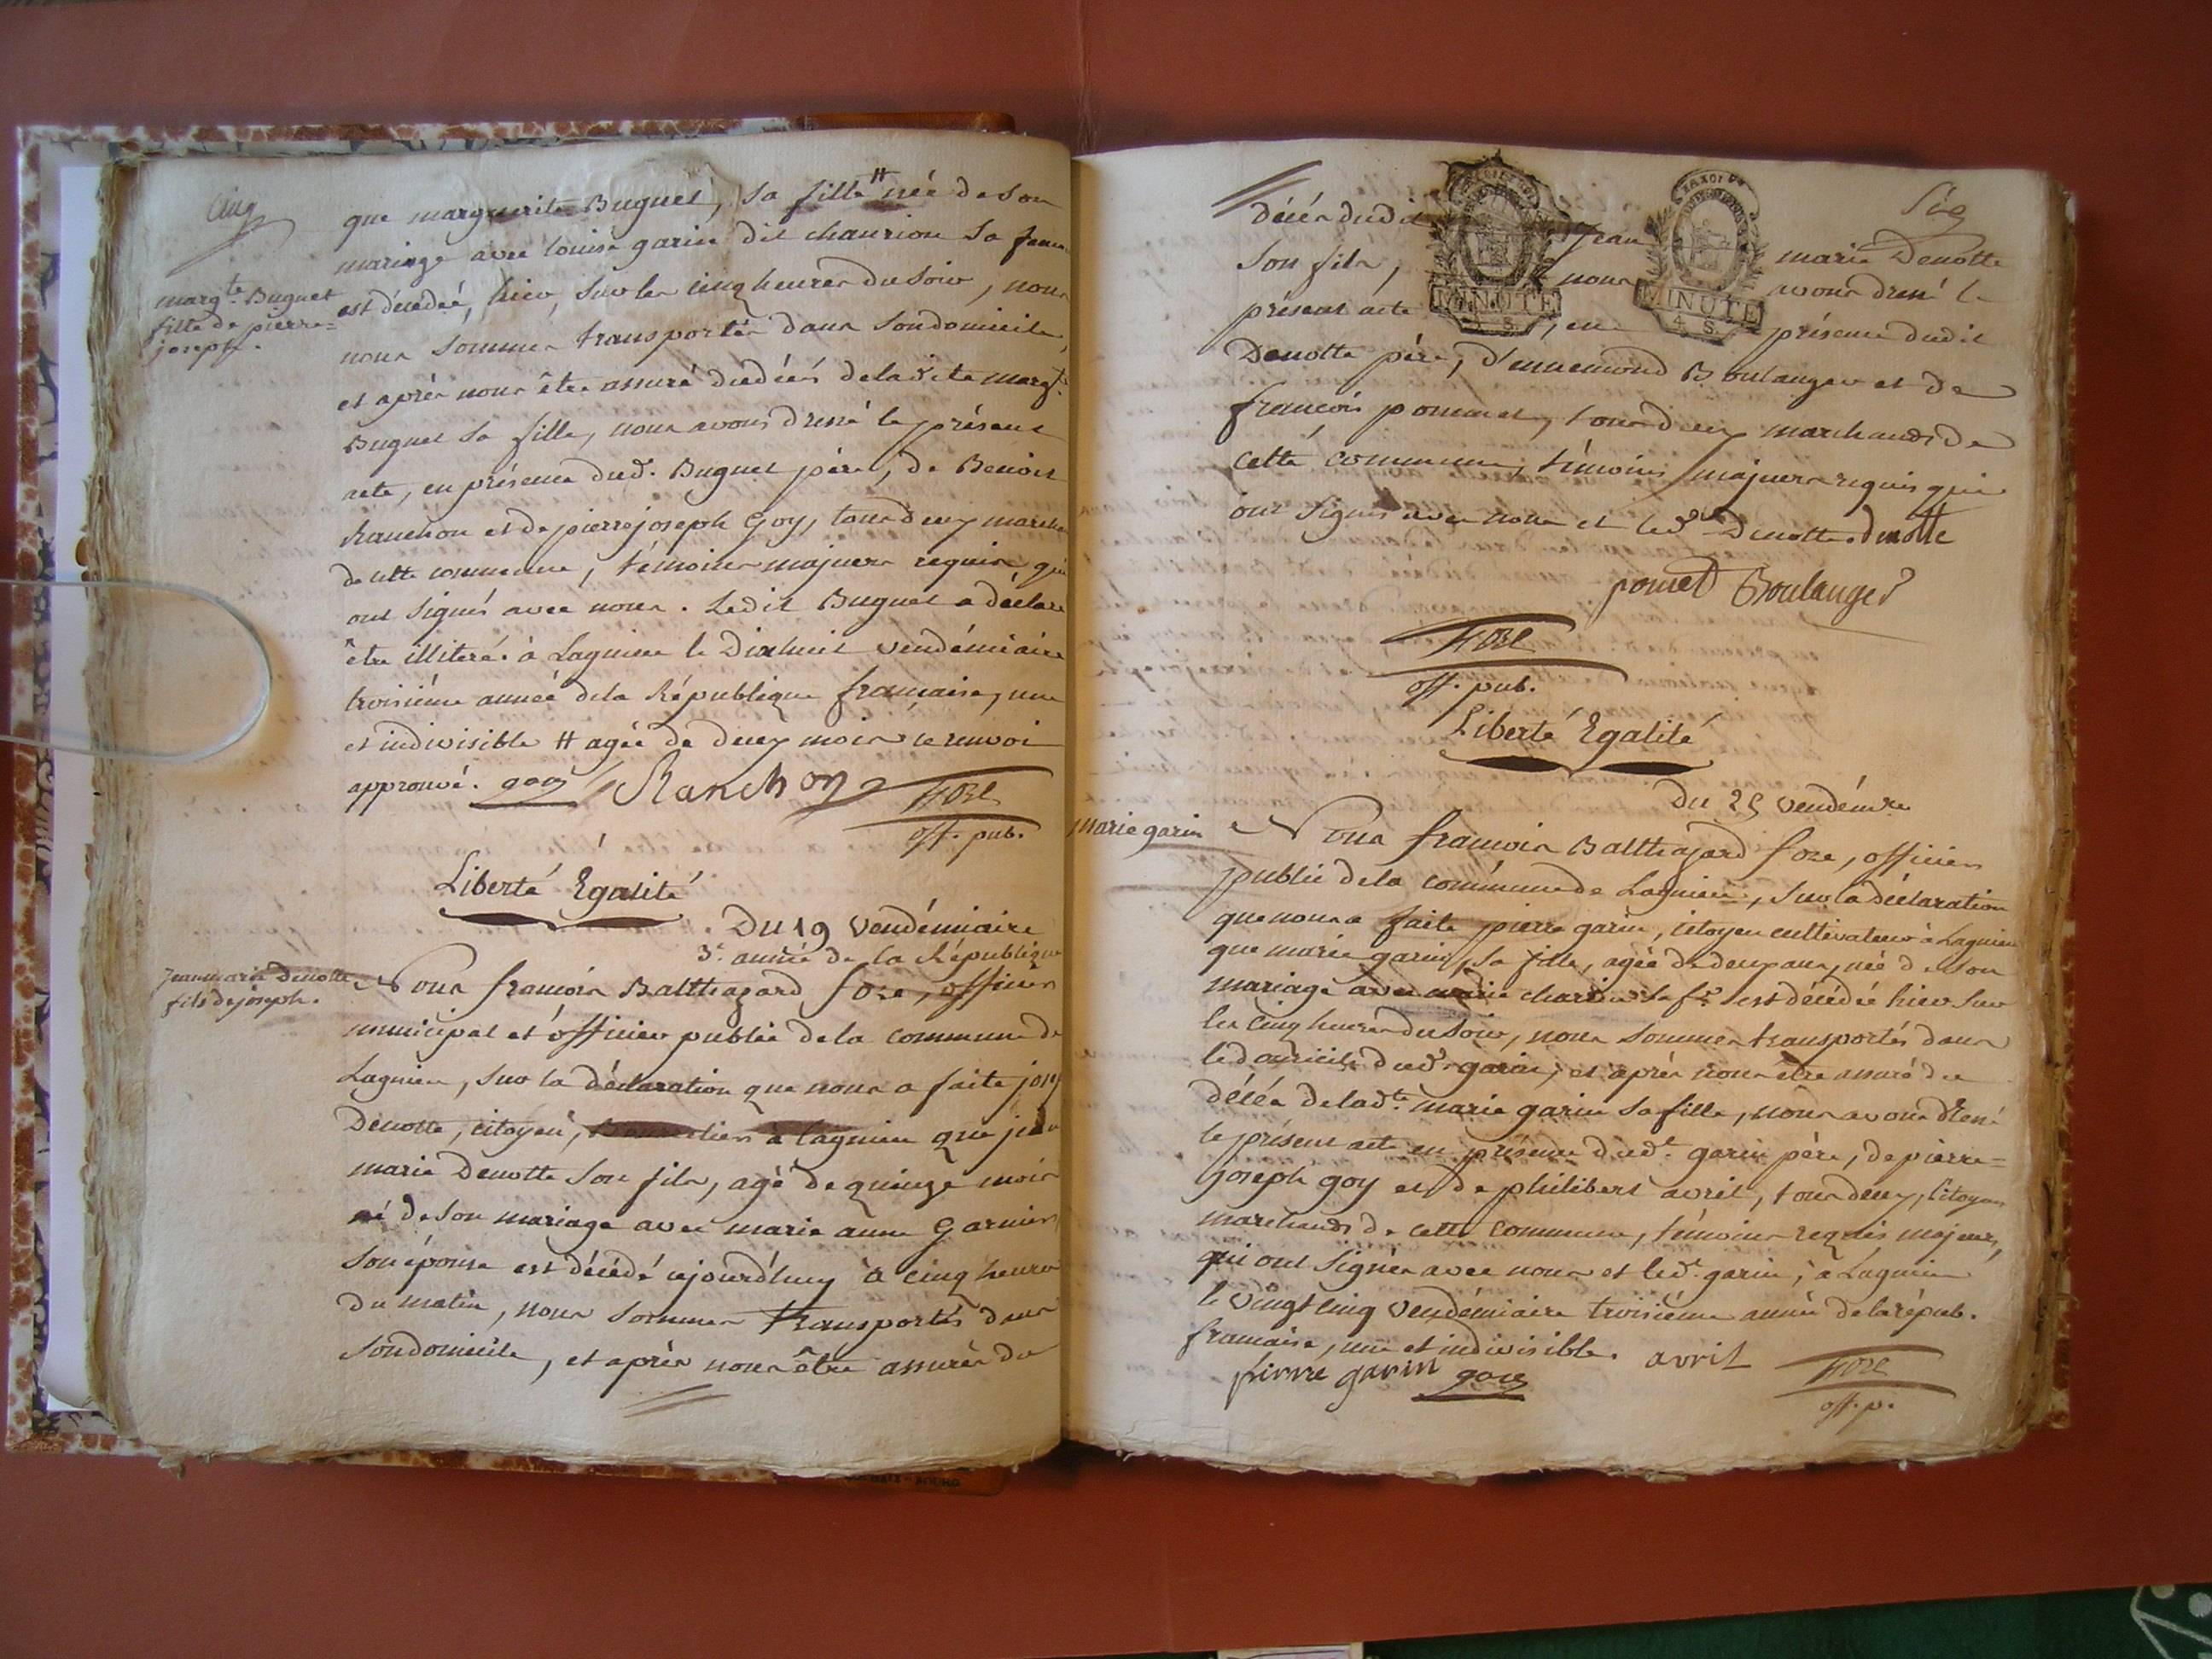 Cinq
que marguerite Buguet, sa fille # née de son
mariage avec louise garin dit chaurion sa fem
margte. Buguet
fille de pierre=
joseph.
est décédeé, hier, sur les cinq heures du soir, nous
nous sommes transportés dans son domicile,
et après nous être assuré du décés de la dite margte.
Buguet sa fille, nous avons dressé le présent
acte, en présence dud. Buguet père, de Benoit
Ranchon et de pierre joseph Goy, tous deux march
de cette commune, témoins majeurs requis, qui
ont signés avec nous. Ledit Buguet a déclaré
être illiteré. à Lagnieu le Dixhuit vendémiaire
troisiéme anneé de la République française, une
et indivisible # agée de deux mois le renvoi
approuvé. goy Ranchon fore
off. pub.
Liberté Egalité
Du 19 vendémiaire
3e. année de la République
Jean marie Denotte
fils de joseph.
Nous francois Balthazard fore, officier
municipal et officier public de la commune de
Lagnieu, sur la déclaration que nous a faite josep
Denotte, citoyen, à lagnieu que jean
marie Denotte son fils, agé de quinze mois
né de son mariage avec marie anne Garnier
son épouse est décédé cejourd'huy à cinq heures
du matin, nous sommes transportés dans
son domicile, et après nous être assurés du
Six
décés dudit Jean marie Denotte
son fils, nous avons dressé le
présent acte, en présence dudit
MINUTE
4 S.
MINUTE
4 S.
Denotte père, d'ennemond Boulanger et de
françois pommet, tous deux marchands de
cette commune, témoins majeurs requis qui
ont signés avec nous et led. Denotte. denotte
pomet Boulanger
fore
off. pub.
Liberté Egalité
Du 25 vendémre
marie garin
Nous francois Balthazard fore, officier
public de la commune de Lagnieu, sur la déclaration
que nous a faite pierre garin, citoyen cultivateur à Lagnieu
que marie garin, sa fille, agée de deux ans, née de son
mariage avec marie sa fe. est décédée hier sur
les cinq heures du soir, nous sommes transportés dans
le domicile dud. garin, et après nous être assuré du
décés de ladte. marie garin sa fille, nous avons dressé
le présent acte en présence dudt. garin père, de pierre=
joseph goy et de philibert avril, tous deux, citoyens
marchands de cette commune, témoins requis majeurs,
qui ont signés avec nous et led. garin; à Lagnieu
le vingt cinq vendémiaire troisiéme année de la répub.
francaise, une et indivisible. avril
pierre garin goy fore
off. p.